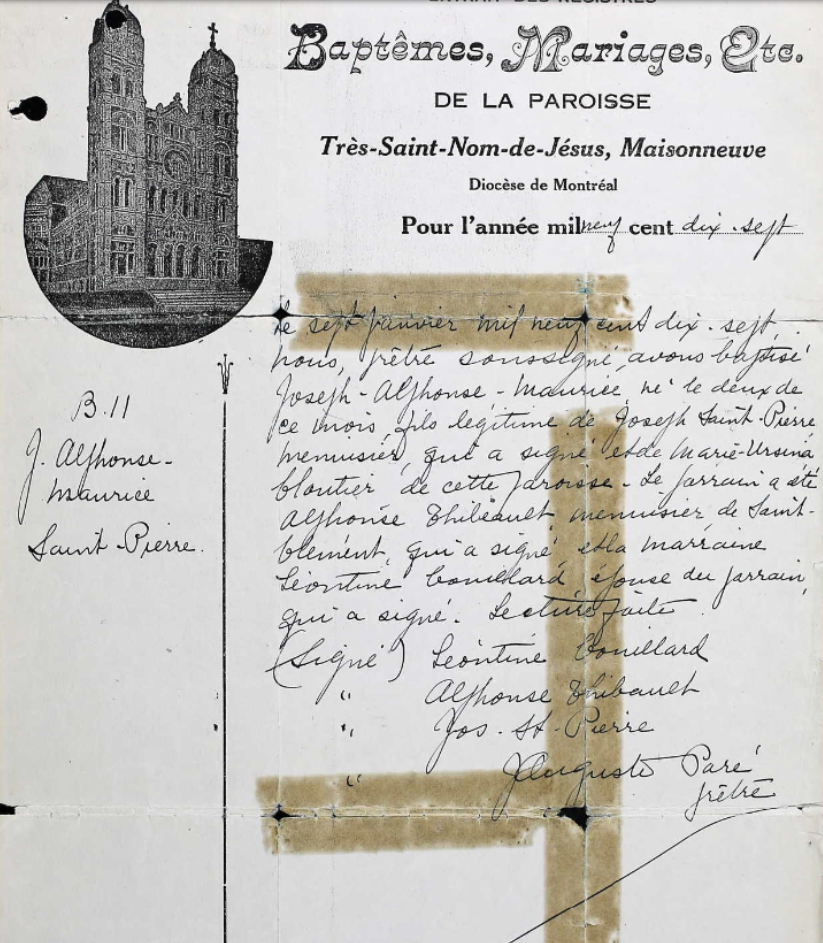 EXTRAIT DES REGISTRES
Baptêmes, Mariages, Etc.
DE LA PAROISSE
Très-Saint-Nom-de-Jésus, Maisonneuve
Diocèse de Montréal
Pour l'année mil neuf cent dix-sept
Le sept janvier mil neuf cent dix-sept,
nous, prêtre soussigné, avons baptisé
Joseph-Alphonse-Maurice, né le deux de
ce mois, fils légitime de Joseph Saint-Pierre
menuisier, qui a signé et de Marie-Ursina
Cloutier de cette paroisse. Le parrain a été
Alphonse Thibeault menuisier de Saint-
Clément, qui a signé et la marraine
Léontine Couillard épouse du parrain,
qui a signé. Lecture faite
(Signé) Léontine Couillard
" Alphonse Thibault
" Jos. St-Pierre
" J Auguste Paré
prêtre
B. 11
J. Alphonse-
Maurice
Saint-Pierre.